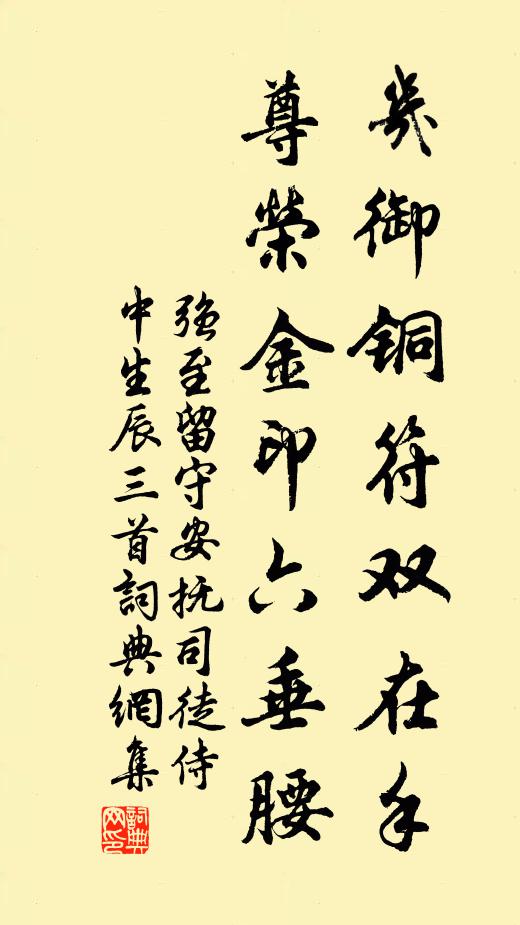 幾御铜符双在手
尊榮金印六垂腰
強至留守安抚司徒侍
中生辰三首詞典網集
詞典網印